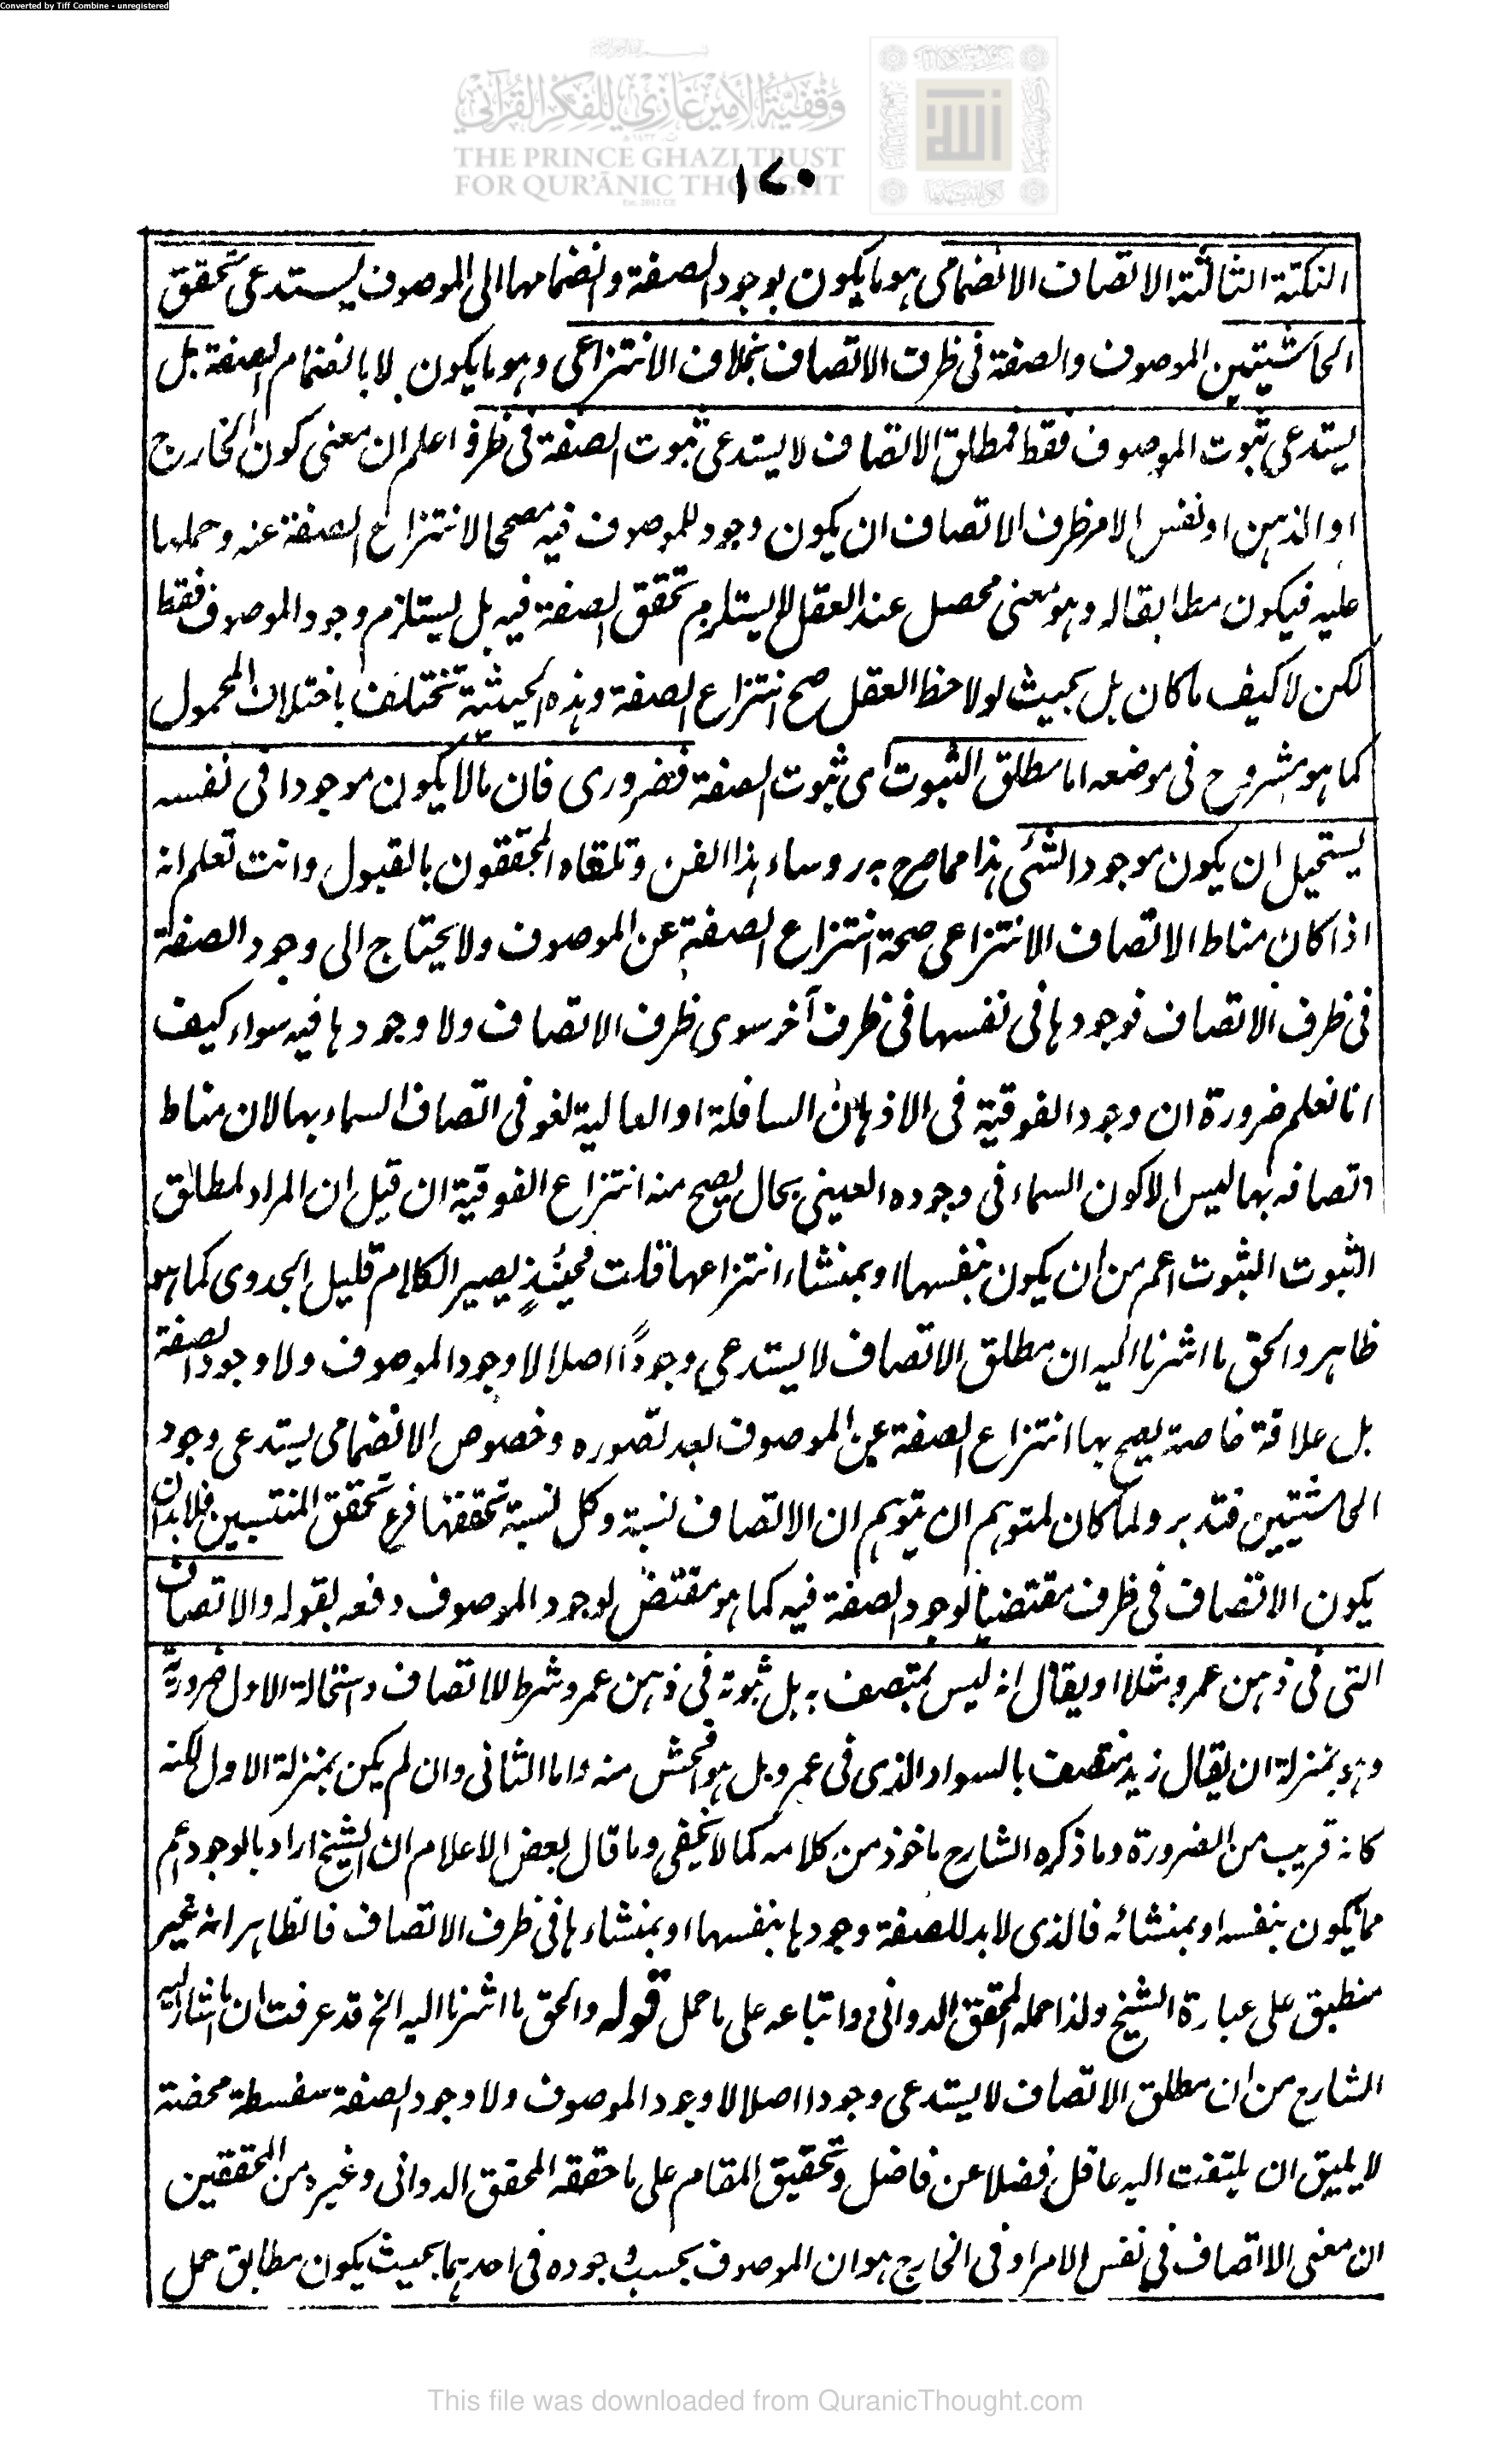 Converted by Tiff Combine - unregistered
وقفية الأمير غازي للفكر القرآني
THE PRINCE GHAZI TRUST
FOR QUR'ĀNIC THOUGHT
١٧٠
النكتة الثالثة الاتصاف الانضمامى هو ما يكون بوجود الصفة وانضمامها الى الموصوف يستدعى تحقق
الحاشيتين الموصوف والصفة فى ظرف الاتصاف بخلاف الانتزاعى وهو ما يكون لا بانضمام الصفة بل
يستدعى ثبوت الموصوف فقط فمطلق الاتصاف لا يستدعى ثبوت الصفة فى ظرفه اعلم ان معنى كون الخارج
او الذهن او نفس الامر ظرف الاتصاف ان يكون وجود للموصوف فيه مصححا لانتزاع الصفة عنه وحملها
عليه فيكون مطابقا له وهو معنى محصل عند العقل لا يستلزم تحقق الصفة فيه بل يستلزم وجود الموصوف فقط
لكن لا كيف ما كان بل بحيث لو لاحظ العقل صح انتزاع الصفة وهذه الحيثية تختلف باختلاف المحمول
كما هو مشروح فى موضعه اما مطلق الثبوت اى ثبوت الصفة فضرورى فان ما لا يكون موجودا فى نفسه
يستحيل ان يكون موجودا لشئ هذا مما صرح به روساء هذا الفن وتلقاه المحققون بالقبول وانت تعلم انه
اذا كان مناط الاتصاف الانتزاعى صحة انتزاع الصفة عن الموصوف ولا يحتاج الى وجود الصفة
فى ظرف الاتصاف فوجودها فى نفسها فى ظرف آخر سوى ظرف الاتصاف ولا وجودها فيه سواء كيف
انا نعلم ضرورة ان وجود الفوقية فى الاذهان السافلة او العالية لغو فى اتصاف السماء بها لان مناط
اتصافه بها ليس الا كون السماء فى وجوده العينى بحال يصح منه انتزاع الفوقية ان قيل ان المراد لمطلق
الثبوت الثبوت اعم من ان يكون بنفسها او بمنشاء انتزاعها قلت فحينئذٍ يصير الكلام قليل الجدوى كما هو
ظاهر والحق ما اشرنا اليه ان مطلق الاتصاف لا يستدعى وجوداً اصلا لا وجود الموصوف ولا وجود الصفة
بل علاقة خاصة يصح بها انتزاع الصفة عن الموصوف بعد تصوره وخصوص الانضمامى يستدعى وجود
الحاشيتين فتدبر ولما كان لمتوهم ان يتوهم ان الاتصاف نسبة وكل نسبة تحققها فرع تحقق المنتسبين فلابد ان
يكون الاتصاف فى ظرف مقتضيا لوجود الصفة فيه كما هو مقتض لوجود الموصوف دفعه بقوله والاتصاف
التى فى ذهن عمرو مثلا او يقال انه ليس بمتصف به بل ثبوته فى ذهن عمرو شرط للاتصاف واستحالة الاول ضرورية
وهو بمنزلة ان يقال زيد متصف بالسواد الذى فى عمرو بل هو افحش منه واما الثانى وان لم يكن بمنزلة الاول لكنه
كانه قريب من الضرورة وما ذكره الشارح ماخوذ من كلامه كما لا يخفى وما قال بعض الاعلام ان الشيخ اراد بالوجود اعم
مما يكون بنفسه او بمنشائه فالذى لابد للصفة وجودها بنفسها او بمنشاءها فى ظرف الاتصاف فالظاهر انه غير
منطبق على عبارة الشيخ ولذا حمله المحقق الدوانى واتباعه على ما حمل قوله والحق ما اشرنا اليه الخ قد عرفت ان ما اشار اليه
الشارح من ان مطلق الاتصاف لا يستدعى وجودا اصلا لا وجود الموصوف ولا وجود الصفة سفسطة محضة
لا يليق ان يلتفت اليه عاقل فضلا عن فاضل وتحقيق المقام على ما حققه المحقق الدوانى وغيره من المحققين
ان معنى الاتصاف فى نفس الامر او فى الخارج هو ان الموصوف بحسب وجوده فى احدهما بحيث يكون مطابق حمل
This file was downloaded from QuranicThought.com